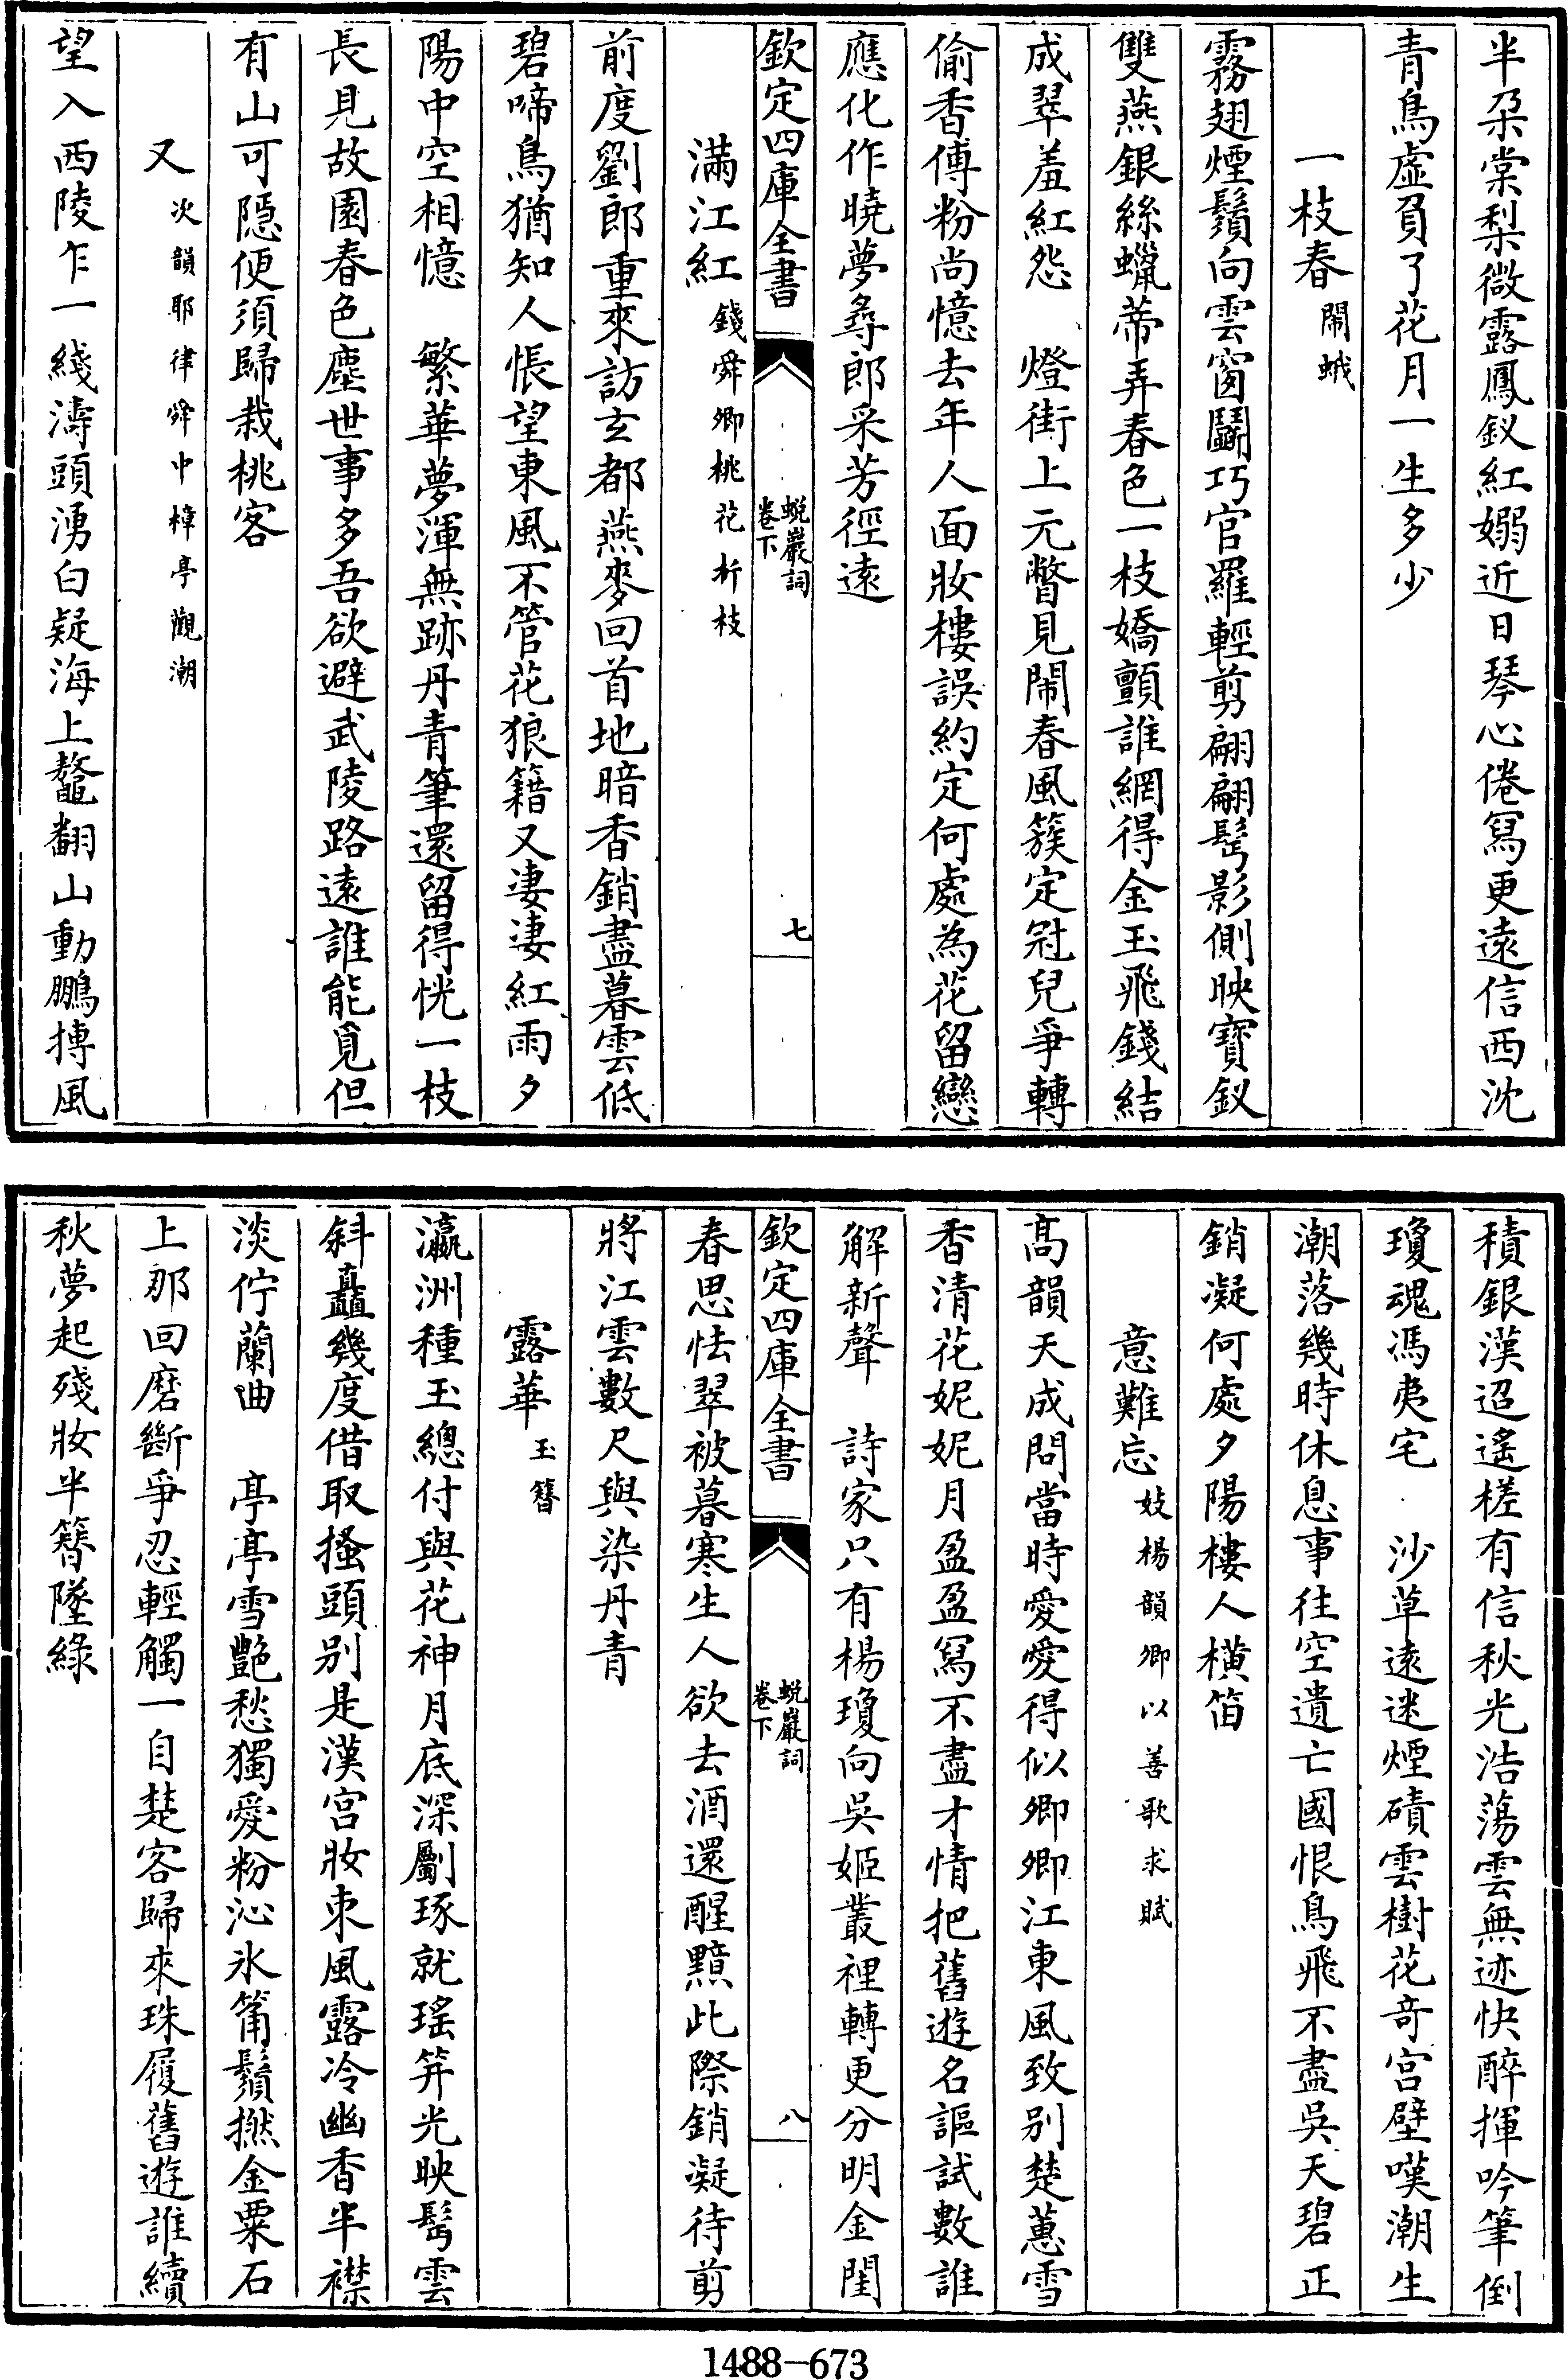 半朶棠梨微露鳳釵紅嫋近日琴心倦冩更遠信西沈
青鳥虛負了花月一生多少
一枝春閙蛾
霧翅煙鬚向雲窗鬭巧宫羅輕剪翩翩鬂影側映寶釵
雙燕銀絲蠟蒂弄春色一枝嬌顫誰網得金玉飛錢結
成翠羞紅怨　燈街上元瞥見閙春風簇定冠兒爭轉
偷香傅粉尚憶去年人面妝樓誤約定何處為花留戀
應化作曉夢尋郎采芳徑遠
欽定四庫全書
蛻巖詞
卷下
七
滿江紅錢舜卿桃花折枝
前度劉郎重來訪玄都燕麥回首地暗香銷盡暮雲低
碧啼鳥猶知人悵望東風不管花狼籍又凄凄紅雨夕
陽中空相憶　繁華夢渾無跡丹青筆還留得恍一枝
長見故園春色塵世事多吾欲避武陵路遠誰能覓但
有山可隱便須歸栽桃客
又次韻耶律舜中樟亭觀潮
望入西陵乍一綫濤頭湧白疑海上鼇翻山動鵬摶風
積銀漢迢遥槎有信秋光浩蕩雲無迹快醉揮吟筆倒
瓊魂馮夷宅　沙草遠迷煙磧雲樹花奇宫壁嘆潮生
潮落幾時休息事往空遺亡國恨鳥飛不盡吳天碧正
銷凝何處夕陽樓人橫笛
意難忘妓楊韻卿以善歌求賦
髙韻天成問當時愛愛得似卿卿江東風致别楚蕙雪
香清花妮妮月盈盈冩不盡才情把舊遊名謳試數誰
解新聲　詩家只有楊瓊向吳姬叢裡轉更分明金閨
欽定四庫全書
蛻巖詞
卷下
八
春思怯翠被暮寒生人欲去酒還醒黯此際銷凝待剪
將江雲數尺與染丹青
露華玉簪
瀛洲種玉總付與花神月底深斸琢就瑤笄光映髩雲
斜矗幾度借取搔頭别是漢宫妝束風露冷幽香半襟
淡佇蘭曲　亭亭雪艷愁獨愛粉沁氷筩鬚撚金粟石
上那回磨斷爭忍輕觸一自楚客歸來珠履舊遊誰續
秋夢起殘妝半簪墜綠
1488—673